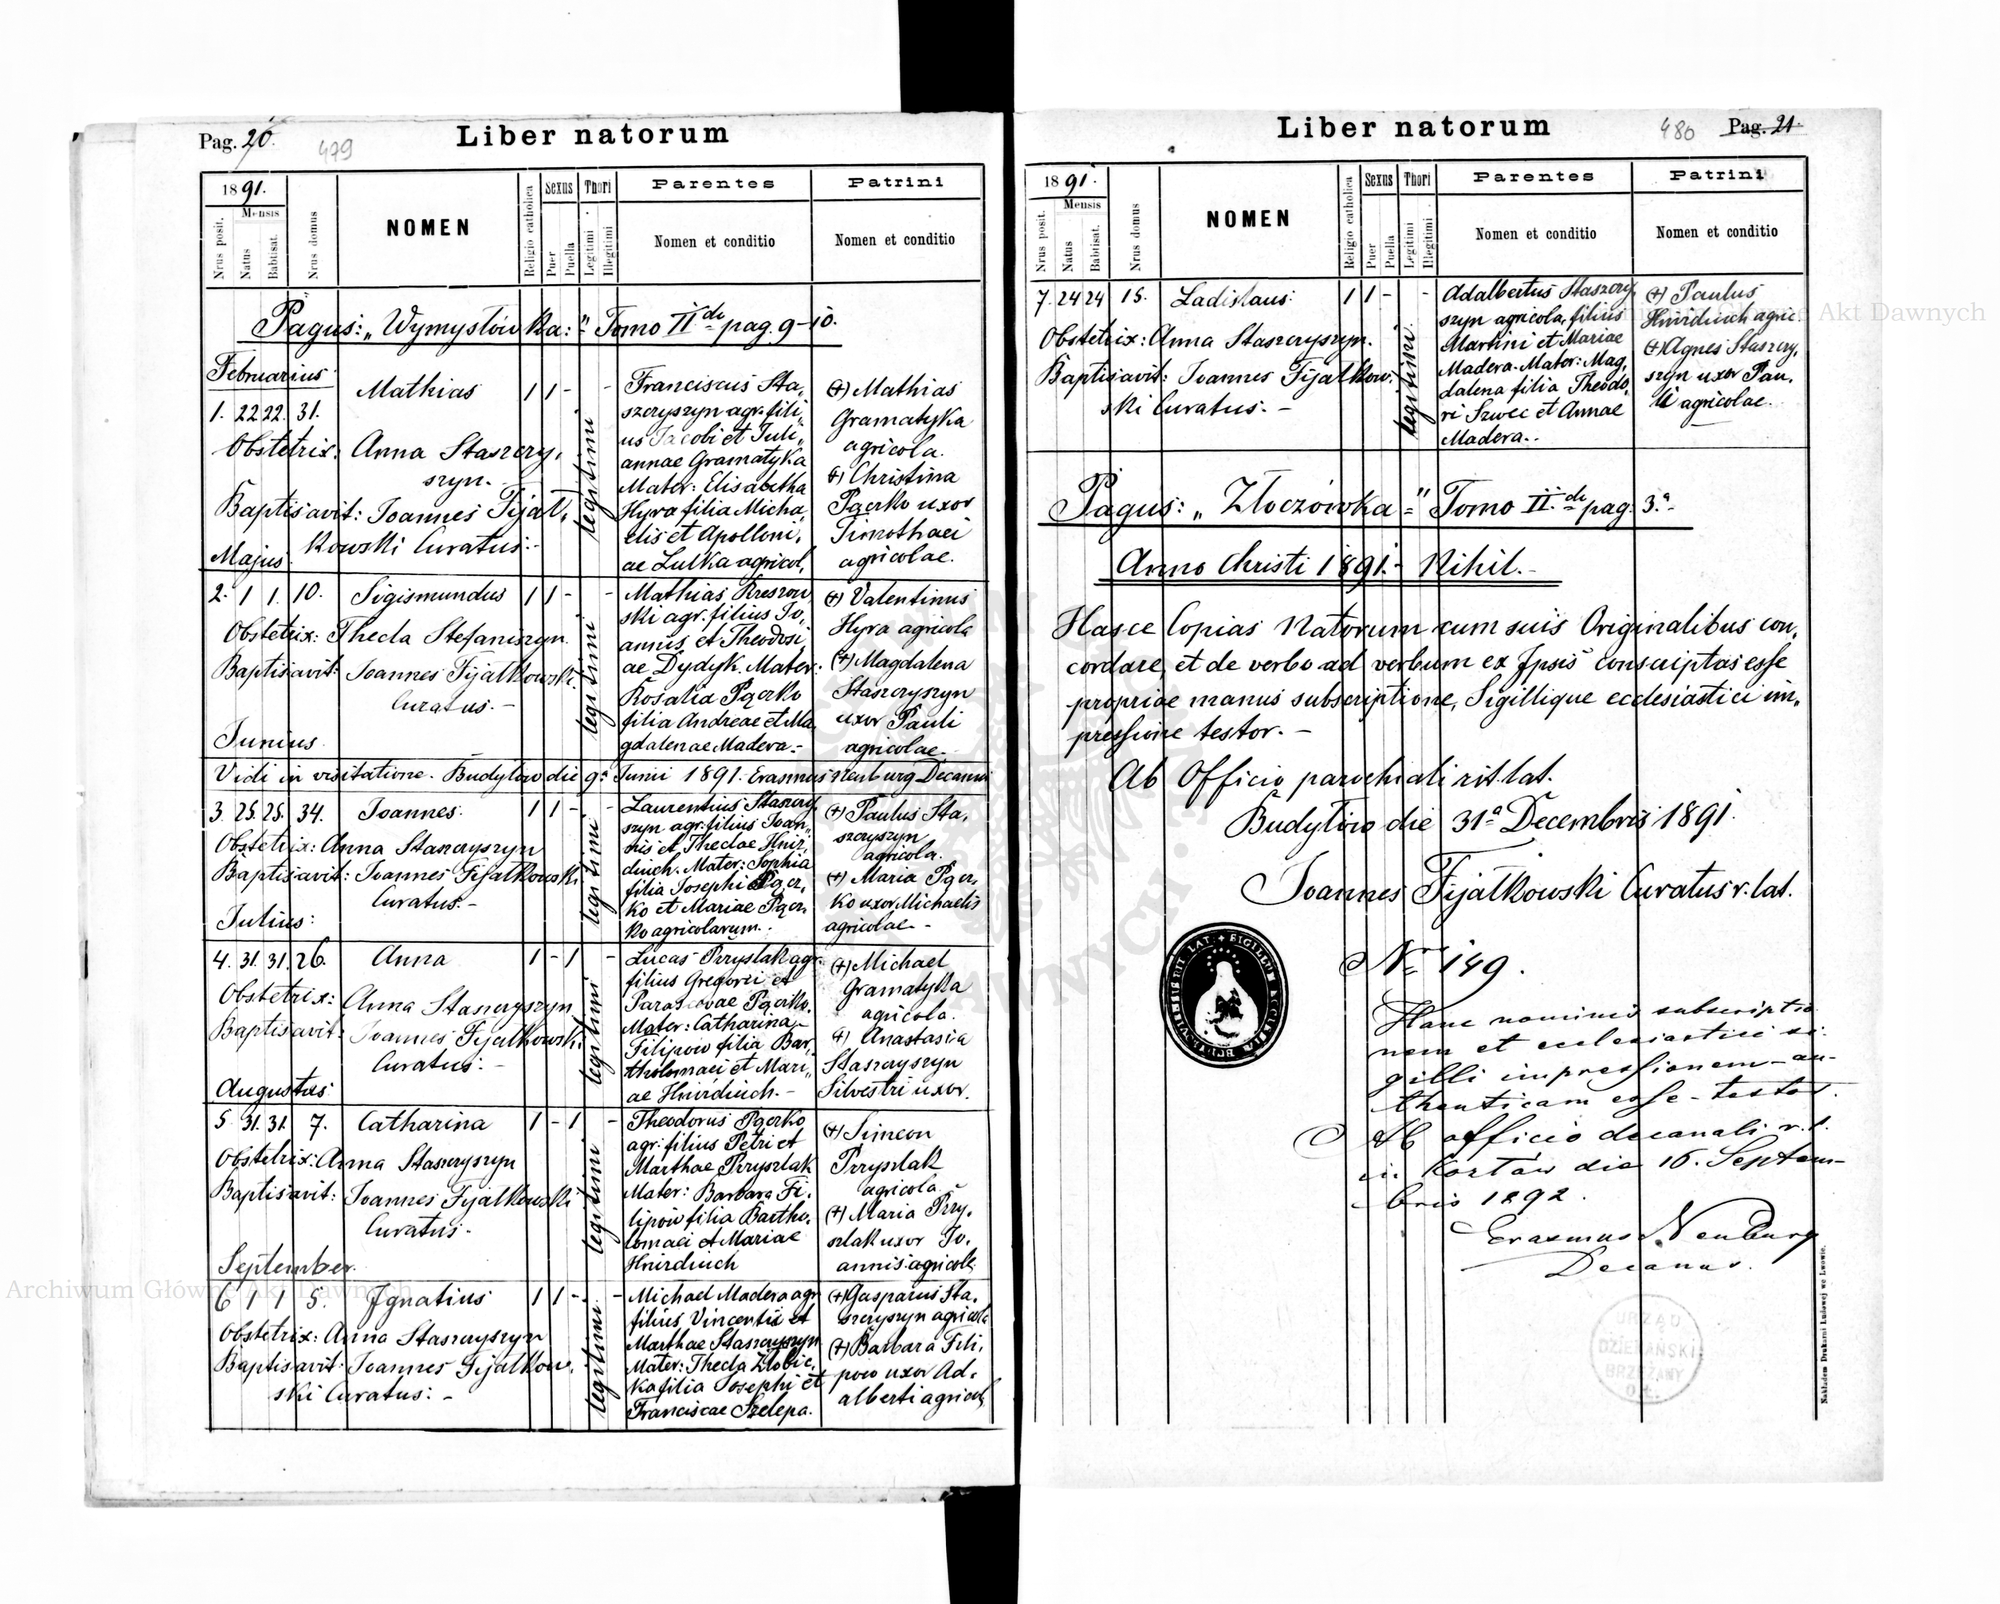 Pag. 20.
479
Liber natorum
1891.
Nrus posit.
Mensis
Natus
Babtisat.
Nrus domus
NOMEN
Religio catholica
Sexus
Puer
Puella
Thori
Legitimi
Illegitimi
Parentes
Nomen et conditio
Patrini
Nomen et conditio
Pagus: „Wymysłówka:" Tomo II de pag. 9-10.
Februarius
1. 22 22. 31. Mathias 1 1 - -
Obstetrix: Anna Staszczy,
szyn.
Baptisavit: Joannes Fijał,
kowski Curatus:-
legitimi
Franciscus Sta,
szczyszyn agr. fili,
us Jacobi et Juli,
annae Gramatyka
Mater: Elisabetha
Hyra filia Micha,
elis et Apolloni,
ae Lulka agricol,
(+) Mathias
Gramatyka
agricola.
(+) Christina
Pączko uxor
Timothaei
agricolae.
Majus
2. 1 1. 10. Sigismundus 1 1 - -
Obstetrix: Thecla Stefaniszyn
Baptisavit: Joannes Fijałkowski
Curatus.-
legitimi
Mathias Brezow
ski agr. filius Jo,
annis et Theodosi
ae Dydyk. Mater:
Rosalia Pączko
filia Andreae et Ma
gdalenae Madera.-
(+) Valentinus
Hyra agricola
(+) Magdalena
Staszczyszyn
uxor Pauli
agricolae.
Junius
Vidi in visitatione. Budyłów die 9a Junii 1891. Erasmus Neuburg Decanus
3. 25. 25. 34. Joannes. 1 1 - -
Obstetrix: Anna Staszczyszyn
Baptisavit: Joannes Fijałkowski
Curatus.-
legitimi
Laurentius Staszczy,
szyn agr. filius Joan,
nis et Theclae Hnir,
diuch. Mater: Sophia
filia Josephi Pącz,
ko et Mariae Pącz,
ko agricolarum.
(+) Paulus Sta,
szczyszyn
agricola.
(+) Maria Pącz,
ko uxor Michaelis
agricolae-
Julius:
4. 31. 31. 26. Anna 1 - 1 -
Obstetrix: Anna Staszczyszyn
Baptisavit: Joannes Fijałkowski
Curatus:-
legitimi
Lucas Przyszlak agr.
filius Gregorii et
Parascevae Pączko.
Mater: Catharina
Filipów filia Bar,
tholomaei et Mari,
ae Hnirdiuch.-
(+) Michael
Gramatyka
agricola.
(+) Anastasia
Staszczyszyn
Silvestri uxor.
Augustus
5. 31. 31. 7. Catharina 1 - 1 -
Obstetrix: Anna Staszczyszyn
Baptisavit: Joannes Fijałkowski
Curatus.
legitimi
Theodorus Pączko
agr. filius Petri et
Marthae Przyszlak
Mater: Barbara Fi,
lipów filia Bartho,
lomaei et Mariae
Hnirdiuch
(+) Simeon
Przyszlak
agricola.
(+) Maria Przy,
szlak uxor Jo,
annis agricolae
September.
6 1 1 5. Ignatius 1 1 - -
Obstetrix: Anna Staszczyszyn
Baptisavit: Joannes Fijałkow,
ski Curatus:-
legitimi
Michael Madera agr
filius Vincentii et
Marthae Staszczyszyn
Mater: Thecla Złobic,
ka filia Josephi et
Franciscae Szelepa.
(+) Gasparus Sta,
szczyszyn agricola
(+) Barbara Fili,
pow uxor Ad,
alberti agricol,
Archiwum Główne Akt Dawnych
Liber natorum
480
Pag. 21.
1891.
Nrus posit.
Mensis
Natus
Babtisat.
Nrus domus
NOMEN
Religio catholica
Sexus
Puer
Puella
Thori
Legitimi
Illegitimi
Parentes
Nomen et conditio
Patrini
Nomen et conditio
7. 24 24 15. Ladislaus: 1 1 - -
Obstetrix: Anna Staszczyszyn.
Baptisavit: Joannes Fijałkow,
ski Curatus.-
legitimi
Adalbertus Staszczy,
szyn agricola, filius
Martini et Mariae
Madera. Mater: Mag,
dalena filia Theodo,
ri Szwec et Annae
Madera..
(+) Paulus
Hnirdiuch agric.
(+) Agnes Staszczy,
szyn uxor Pau,
li agricolae.
Pagus: „Złoczówka" Tomo II. de pag. 3.a
Anno Christi 1891.- Nihil.-
Hasce Copias Natorum cum suis Originalibus con,
cordare, et de verbo ad verbum ex Ipsis conscriptas esse
propriae manus subscriptione, Sigillique ecclesiastici im,
pressione testor.-
Ab Officio parochiali rit. lat.
Budyłów die 31a Decembris 1891.
Joannes Fijałkowski Curatus r. lat.
Nr 149.
Hanc nominis subscriptio
nem et ecclesiastici si-
gilli impressionem au-
thenticam esse testor.
Ab officio decanali r. l.
in Kozłów die 16. Septem-
bris 1892.
Erasmus Neuburg
Decanus.
URZĄD
DZIEKAŃSKI
BRZEŻANY
o. ł.
Nakładem Drukarni Ludowej we Lwowie.
Akt Dawnych